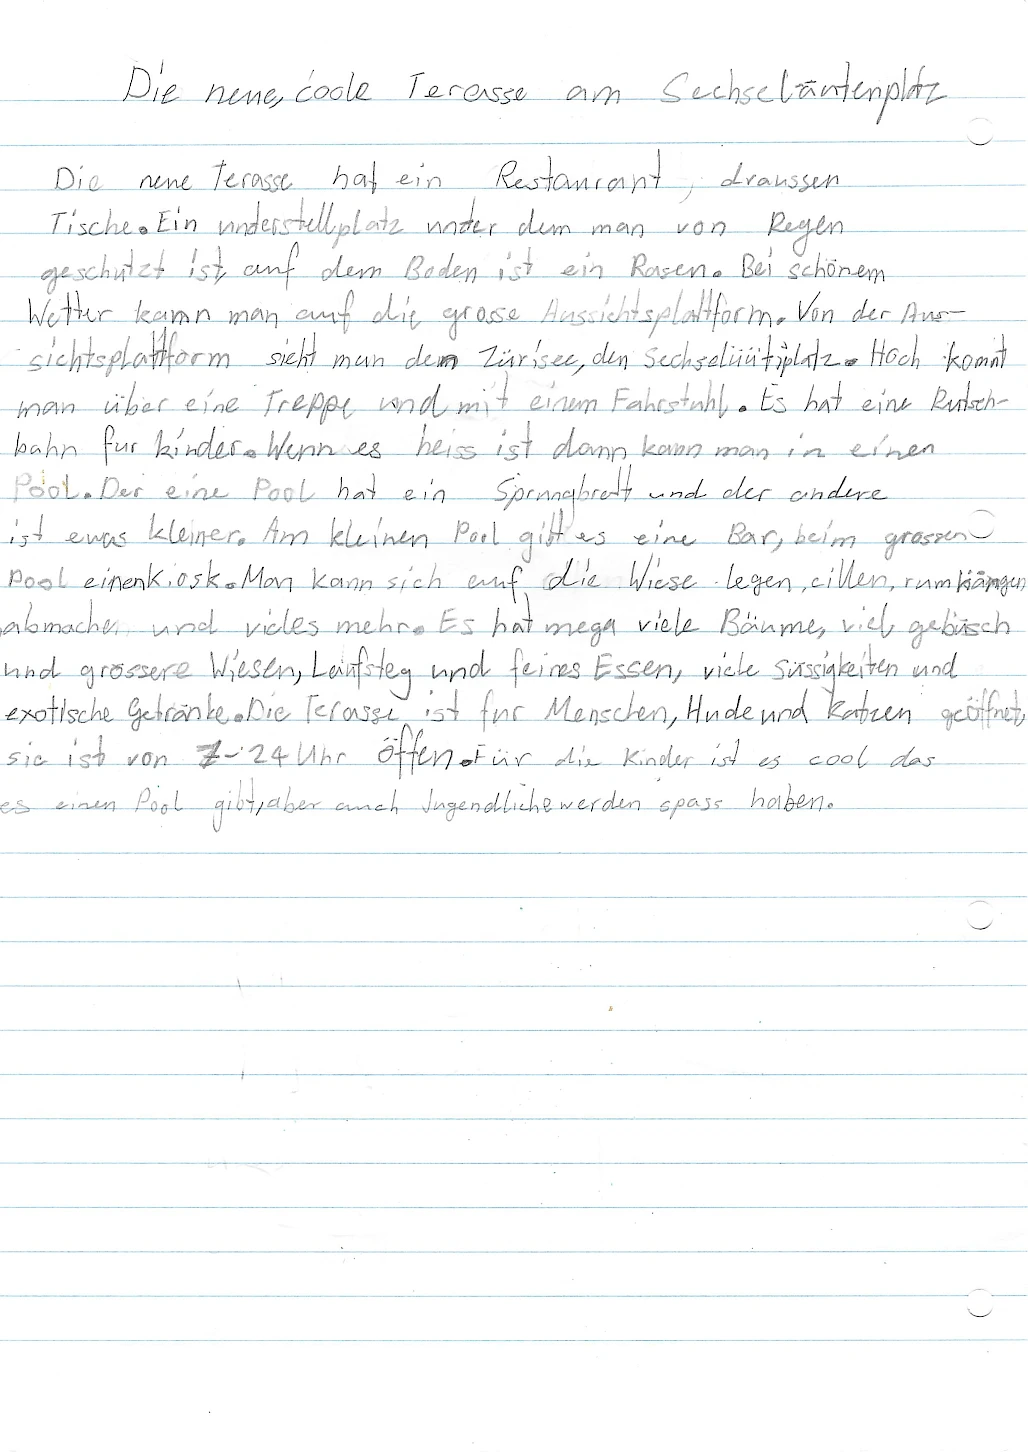 Die neue, coole Terasse am Sechseläutenplatz
Die neue Terasse hat ein Restaurant, draussen
Tische. Ein understellplatz unter dem man von Regen
geschützt ist, auf dem Boden ist ein Rasen. Bei schönem
Wetter kann man auf die grosse Aussichtsplattform. Von der Aus-
sichtsplattform sieht man den Zürisee, den Sechselüütiplatz. Hoch kommt
man über eine Treppe und mit einem Fahrstuhl. Es hat eine Rutsch-
bahn fur kinder. Wenn es heiss ist dann kann man in einen
Pool. Der eine Pool hat ein Sprungbrett und der andere
ist ewas kleiner. Am kleinen Pool gibt es eine Bar, beim grossen
Pool einen Kiosk. Man kann sich auf die Wiese legen, cillen, rumhängen
abmachen und vieles mehr. Es hat mega viele Bäume, viel gebüsch
und grössere Wiesen, Laufsteg und feines Essen, viele süssigkeiten und
exotische Getränke. Die Terasse ist fur Menschen, Hude und Katzen geöffnet,
sie ist von 7-24 Uhr öffen. Für die Kinder ist es cool das
es einen Pool gibt, aber auch Jugendliche werden spass haben.